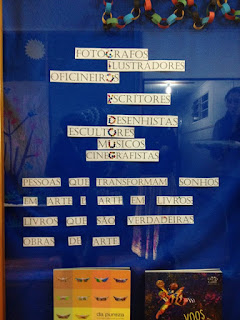 FOTÓGRAFOS
ILUSTRADORES
OFICINEIROS
ESCRITORES
DESENHISTAS
ESCULTORES
MUSICOS
CINEGRAFISTAS
PESSOAS QUE TRANSFORMAM SONHOS
EM ARTE E ARTE EM LIVROS.
LIVROS QUE SÃO VERDADEIRAS
OBRAS DE ARTE
da pureza
VOOS